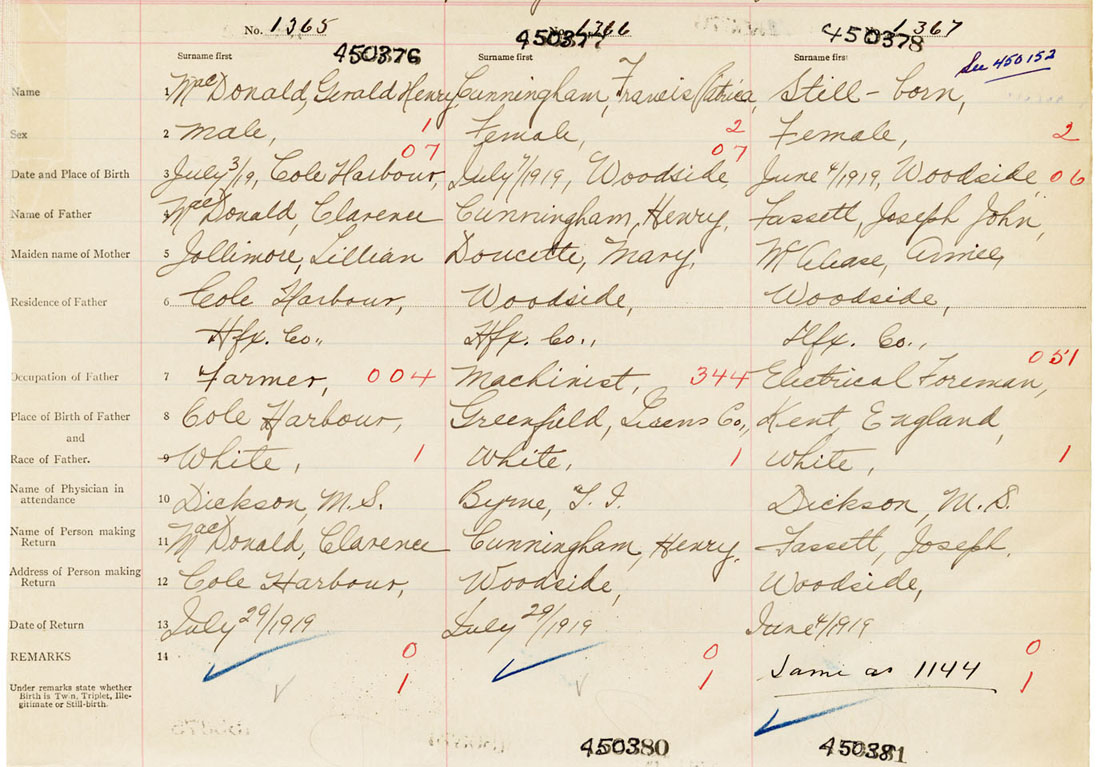 No. 1365 1366 1367
450376 450377 450378
Surname first Surname first Surname first See 450152
Name 1 MacDonald, Gerald Henry Cunningham, Francis Patricia, Still-born,
Sex 2 Male, 1 Female, 2 Female, 2
07 07
Date and Place of Birth 3 July 3/19, Cole Harbour, July 7/1919, Woodside, June 4/1919, Woodside, 06
Name of Father 4 MacDonald, Clarence Cunningham, Henry, Fassett, Joseph John,
Maiden name of Mother 5 Jollimore, Lillian Doucette, Mary, McAlease, Annie,
Residence of Father 6 Cole Harbour, Woodside, Woodside,
Hfx. Co., Hfx. Co., Hfx. Co.,
051
Occupation of Father 7 Farmer, 004 Machinist, 344 Electrical Foreman,
Place of Birth of Father 8 Cole Harbour, Greenfield, Co., Kent, England,
and
Race of Father. 9 White, 1 White, 1 White, 1
Name of Physician in
attendance 10 Dickson, M.S. Byrne, T. I. Dickson, M.S.
Name of Person making
Return 11 MacDonald, Clarence Cunningham, Henry, Fassett, Joseph,
Address of Person making
Return 12 Cole Harbour, Woodside, Woodside,
Date of Return 13 July 29/1919 July 29/1919 June 4/1919
REMARKS 14 0 0 Same as 1144 0
Under remarks state whether 1 1 1
Birth is Twin, Triplet, Ille-
gitimate or Still-birth.
450380 450381